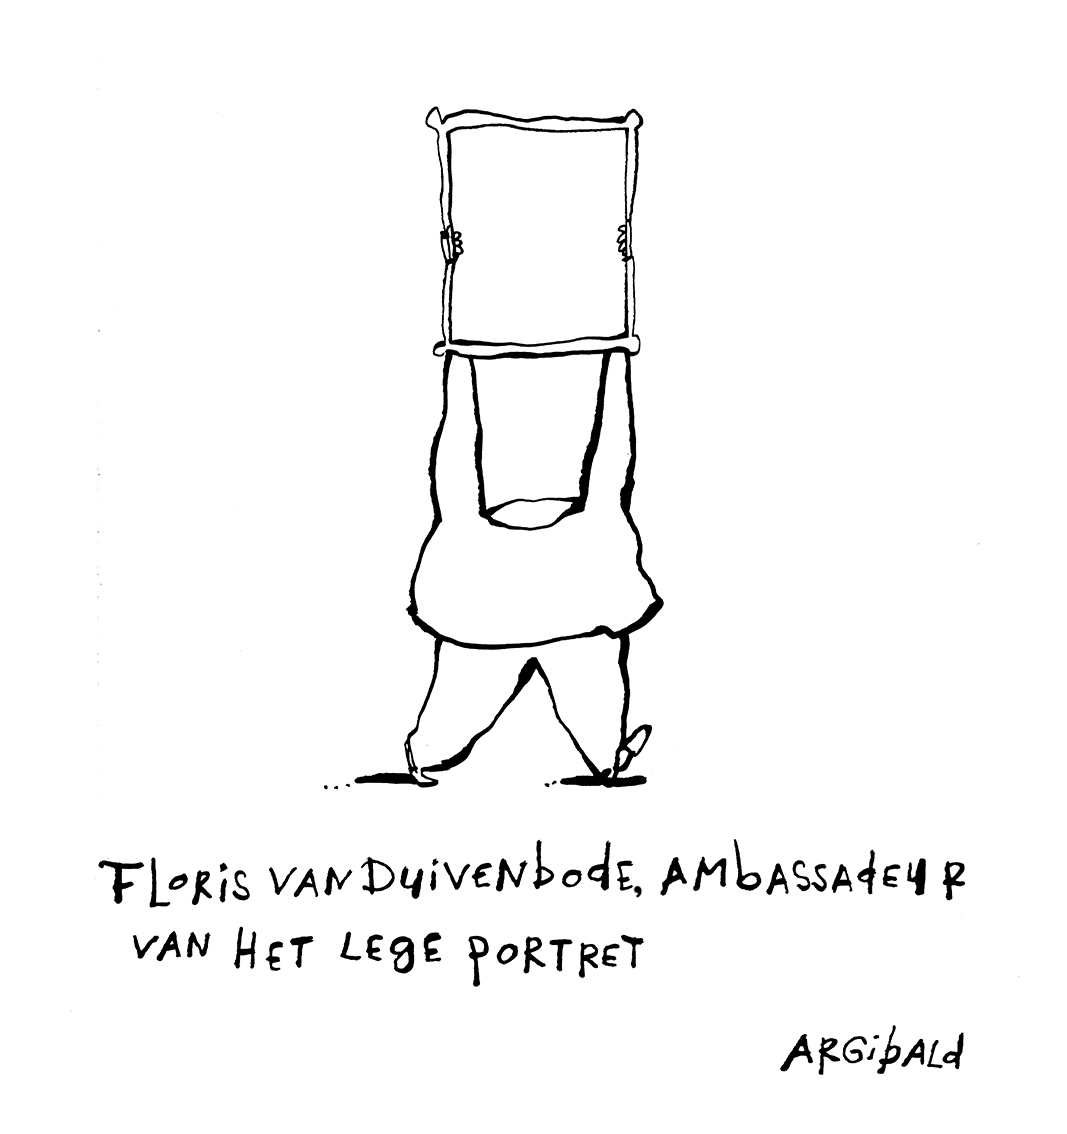 FLORIS VAN DUIVENBODE, AMBASSADEUR
VAN HET LEGE PORTRET
ARGIBALD